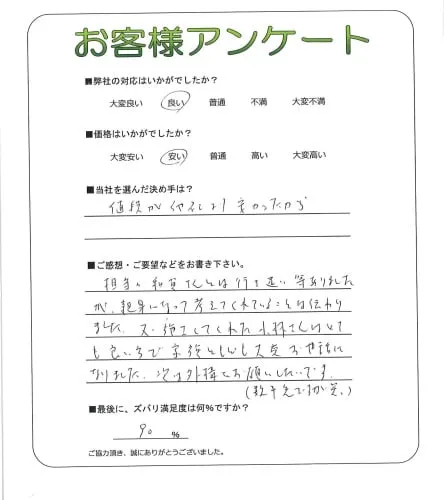 お客様アンケート
■弊社の対応はいかがでしたか？
大変良い 良い 普通 不満 大変不満
■価格はいかがでしたか？
大変安い 安い 普通 高い 大変高い
■当社を選んだ決め手は？
値段が他社より安かったから
■ご感想・ご要望などをお書き下さい。
担当の和賀さんとは行き違い等ありました
が、親身になって考えてくれていることは伝わり
ました。又、施工してくれた小林さんはとて
も良い方で家族ともども大変お世話に
なりました。次は外構でお願いしたいです。
(数年先ですが笑。)
■最後に、ズバリ満足度は何％ですか？
90 ％
ご協力頂き、誠にありがとうございました。